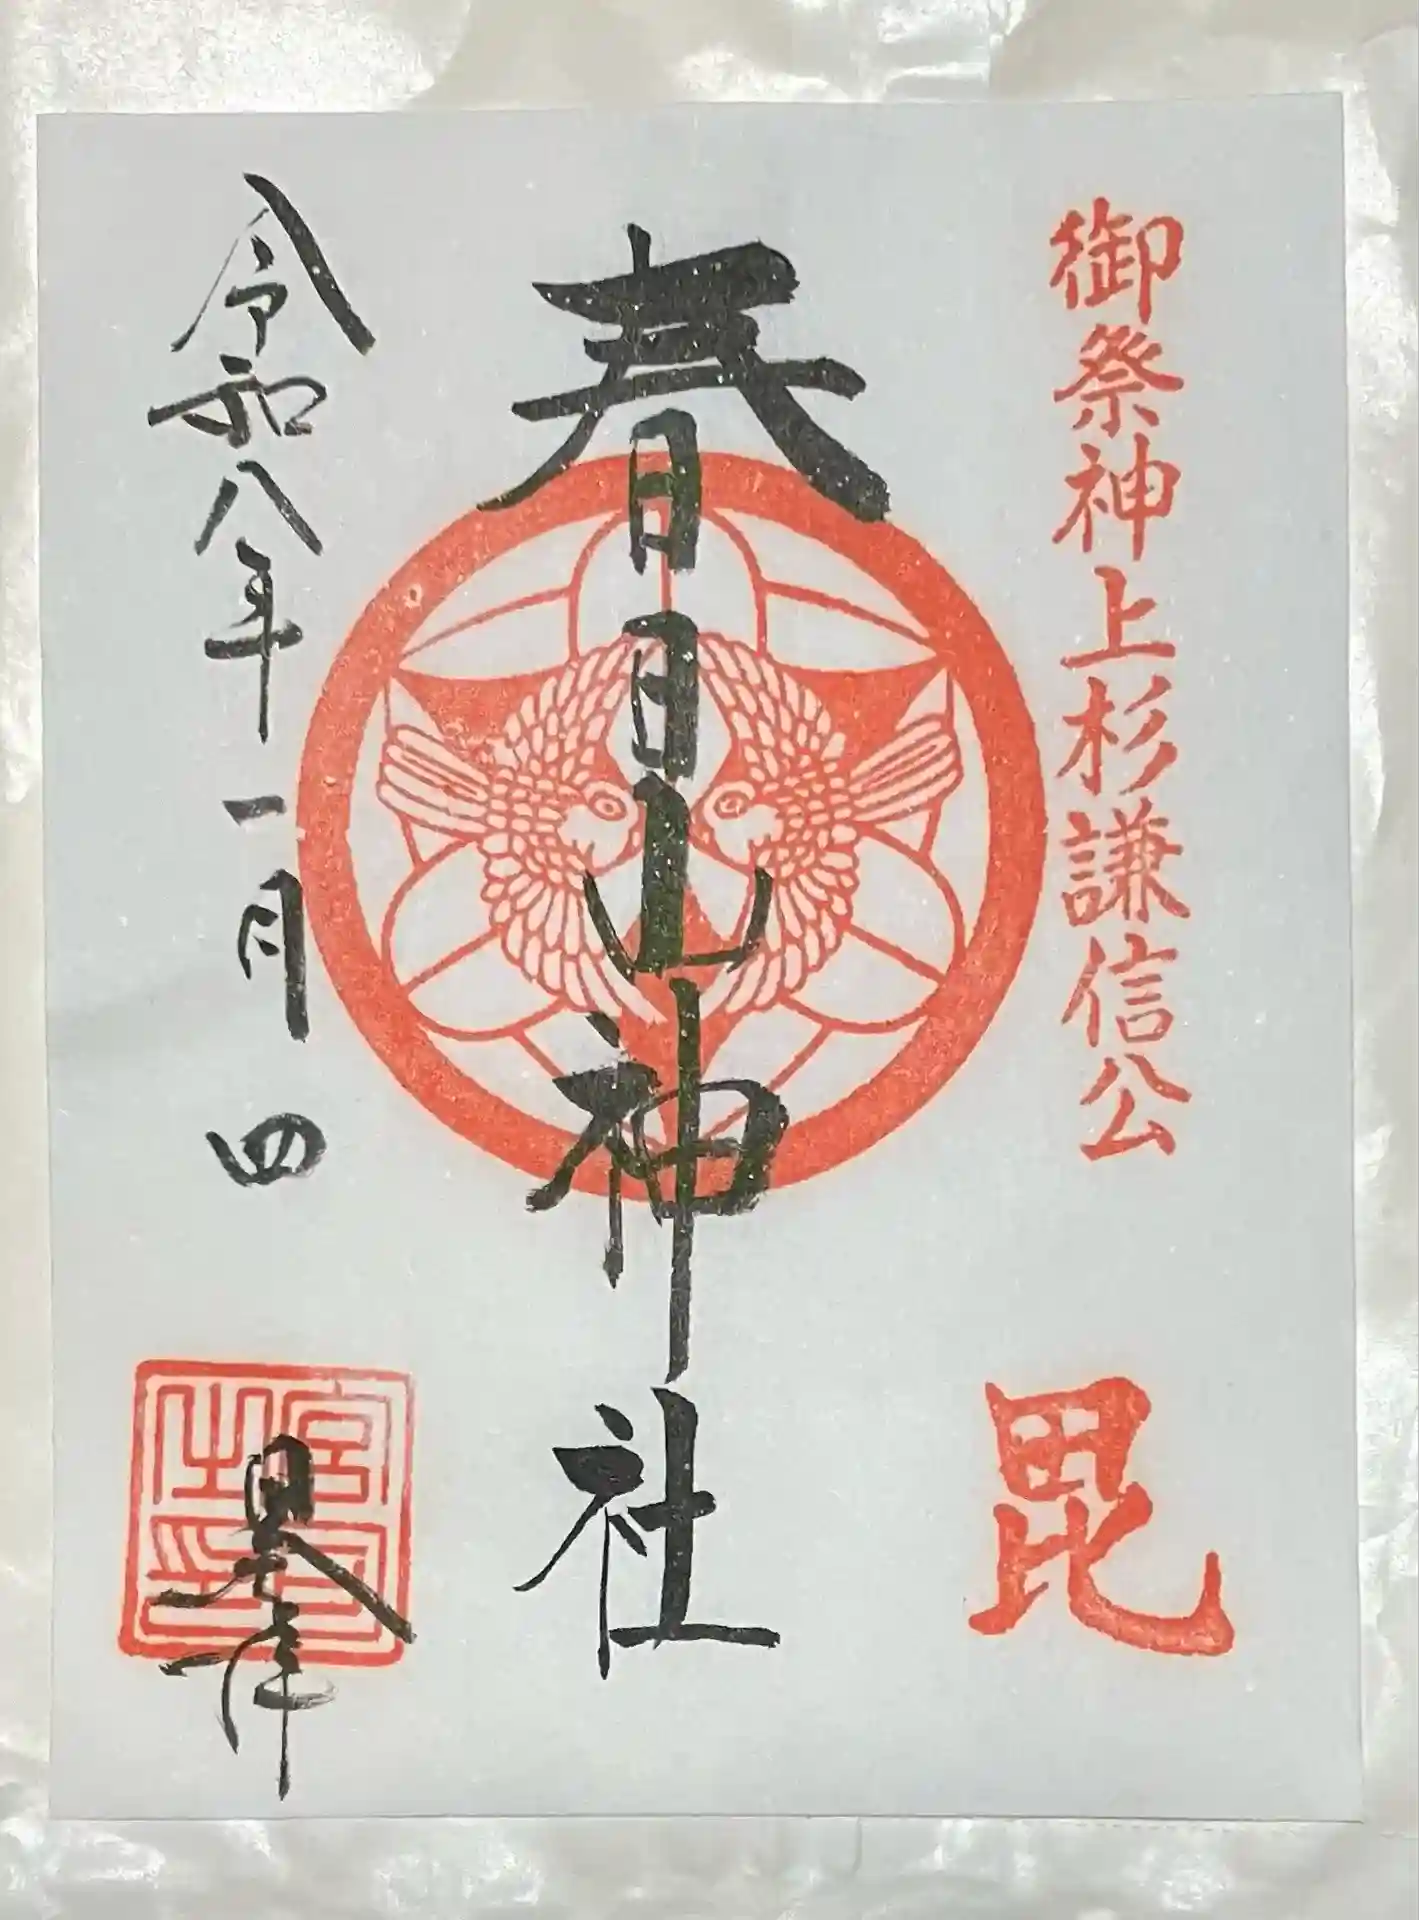 御祭神上杉謙信公
毘
春日山神社
令和八年一月四日
奉拝